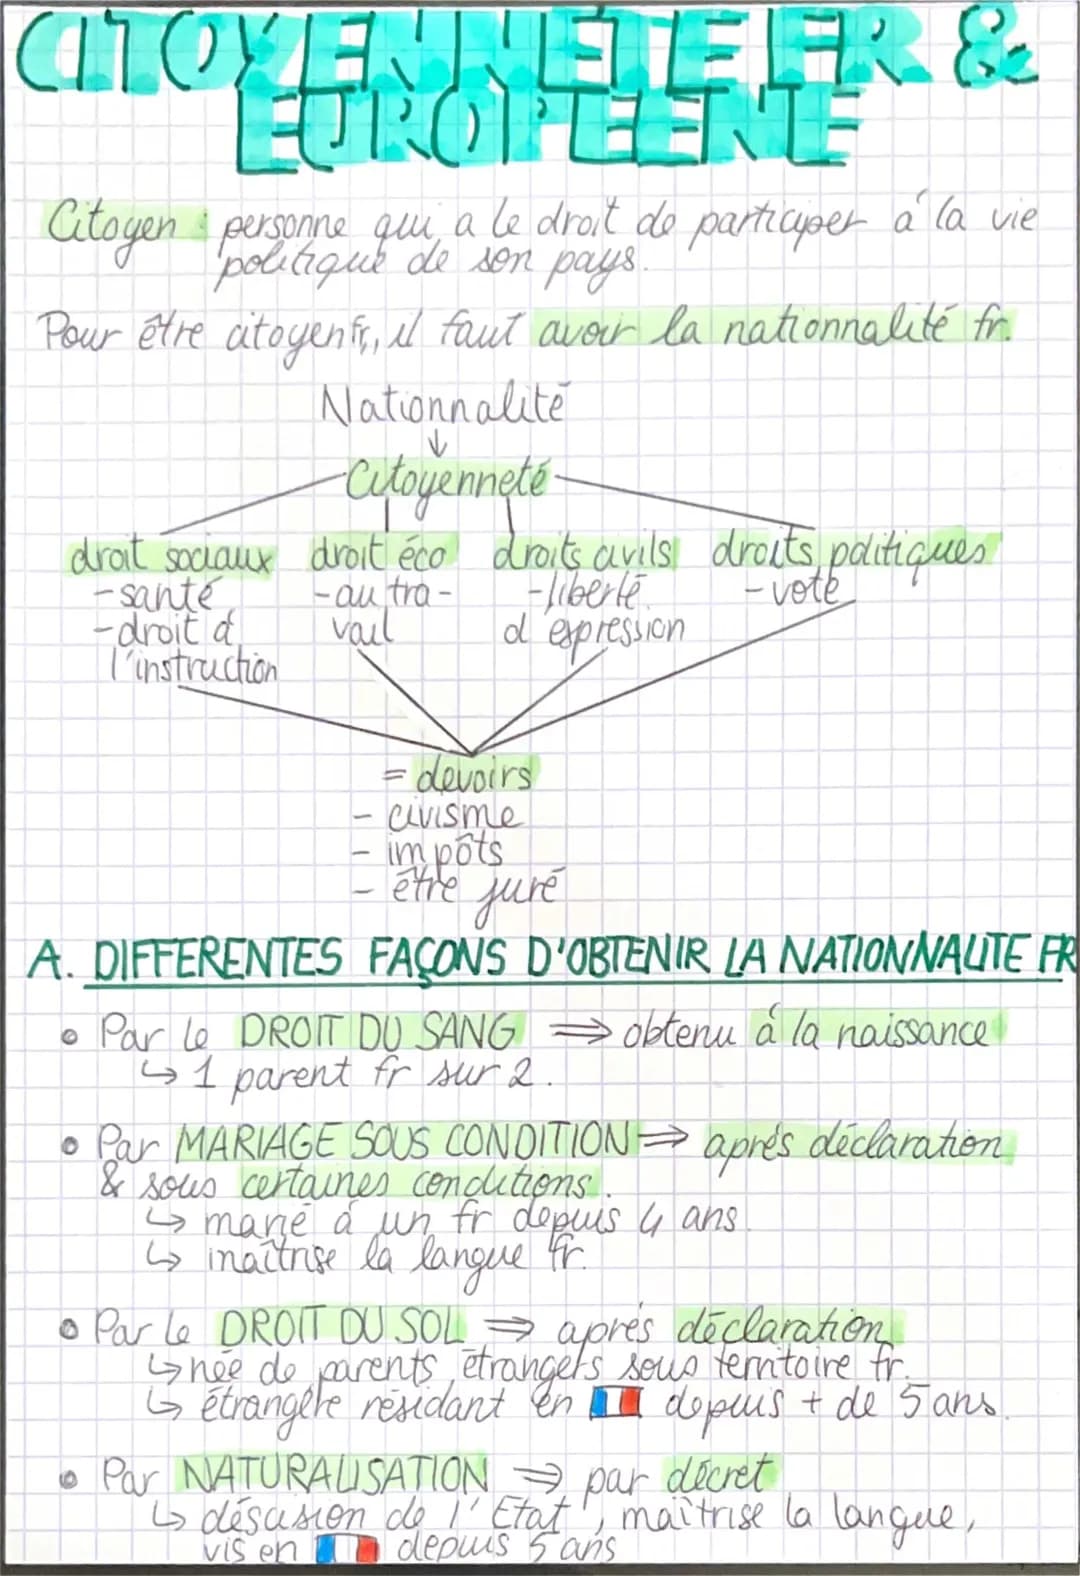 CITOYENNETE FR &
EUROPEENE
Citoyen : personne qui a le droit de participer à la vie
politique de son pays.
Pour être citoyen fr, il faut avoir la nationnalité fr.
Nationnalité
↓
Citoyenneté
droit sociaux droit éco droits civils droits politiques
- santé - au tra- - liberté - vote
- droit à vail d'expression
l'instruction
= devoirs
- civisme
- impôts
- être juré
A. DIFFERENTES FAÇONS D'OBTENIR LA NATIONNALITE FR
• Par le DROIT DU SANG ⇒ obtenu à la naissance
↳ 1 parent fr sur 2.
• Par MARIAGE SOUS CONDITION ⇒ aprés déclaration
& sous certaines conditions.
↳ marié à un fr depuis 4 ans.
↳ maîtrise la langue fr.
• Par le DROIT DU SOL ⇒ aprés déclaration
↳ née de parents étrangers sous territoire fr.
↳ étrangère résidant en 🇫🇷 depuis + de 5 ans.
• Par NATURALISATION ⇒ par décret
↳ déscision de l'Etat, maîtrise la langue,
vis en 🇫🇷 depuis 5 ans